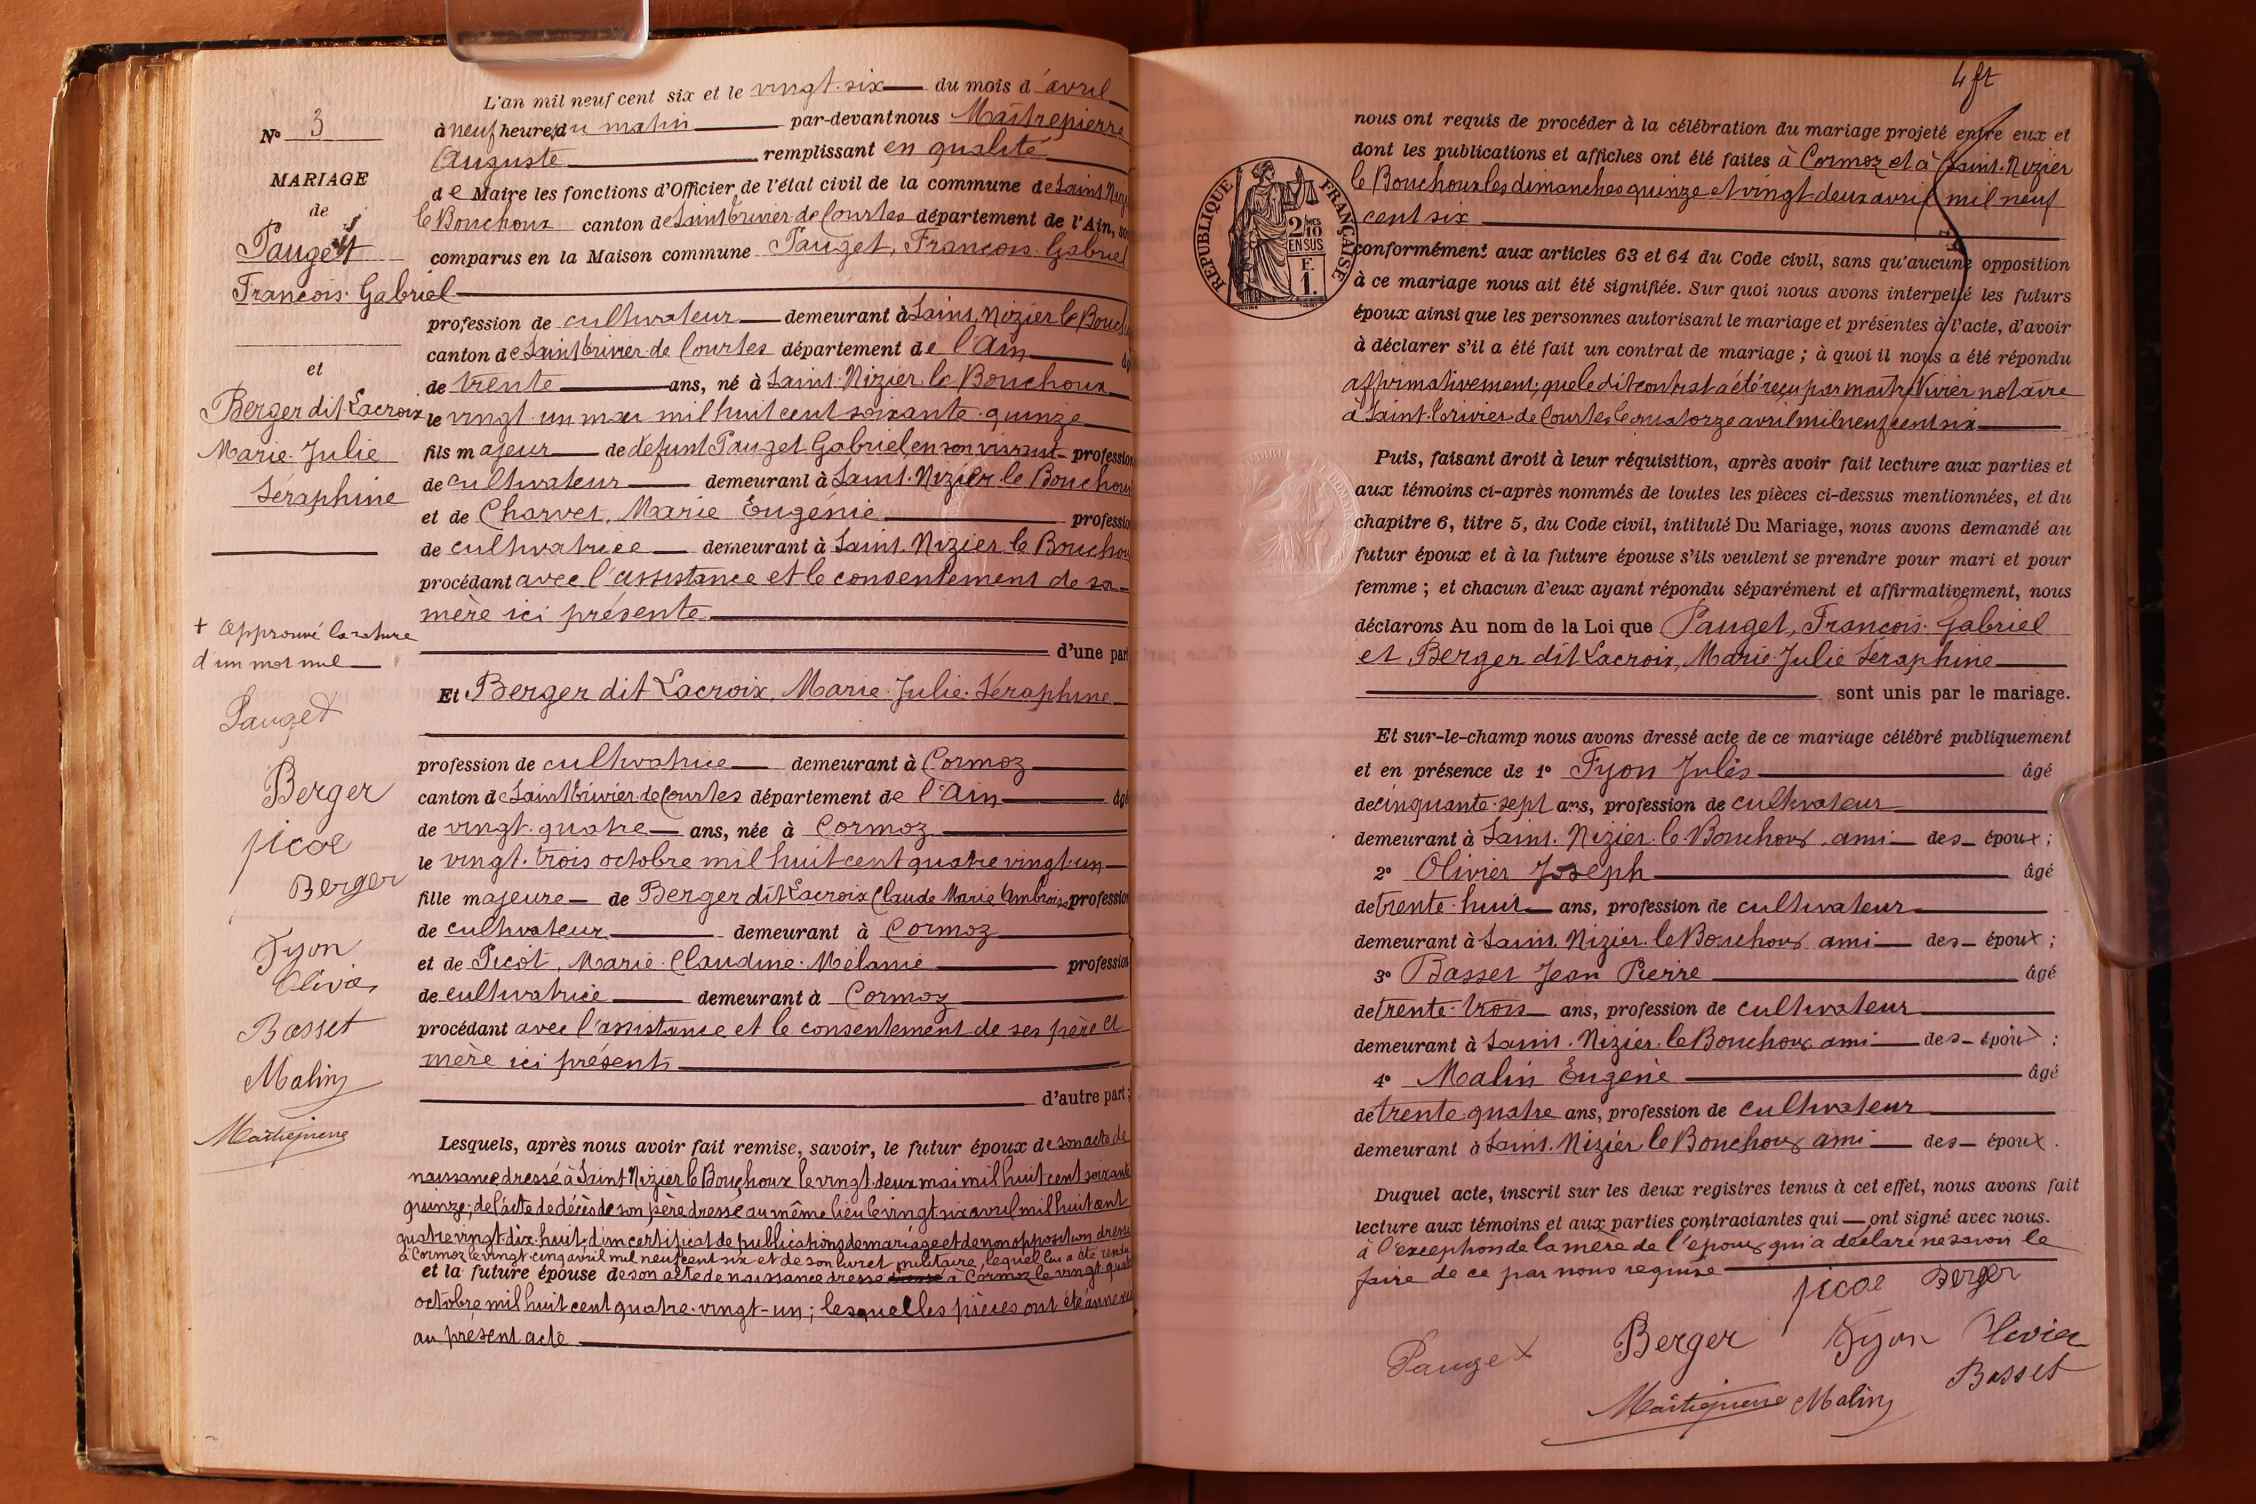 N° 3
MARIAGE
de
Pauget
François. Gabriel
et
Berger dit Lacroix
Marie. Julie
Séraphine
+ Approuvé la rature
d'un mot nul
Pauget
Berger
picot
Berger
Fyon
Olivier
Basset
Malin
Maîtrepierre
L'an mil neuf cent six et le vingt-six du mois d'avril
à neuf heures du matin par-devant nous Maîtrepierre
Auguste remplissant en qualité
de Maire les fonctions d'Officier de l'état civil de la commune de Saint Nizier
le Bouchoux canton de Saint Trivier de Courtes département de l'Ain, sont
comparus en la Maison commune Pauget, François. Gabriel
profession de cultivateur demeurant à Saint. Nizier le Bouchoux
canton de Saint Trivier de Courtes département de l'Ain âgé
de trente ans, né à Saint. Nizier le Bouchoux
le vingt un mai mil huit cent soixante. quinze
fils majeur de défunt Pauget Gabriel en son vivant profession
de cultivateur demeurant à Saint. Nizier le Bouchoux
et de Charvet, Marie Eugénie profession
de cultivatrice demeurant à Saint. Nizier le Bouchoux
procédant avec l'assistance et le consentement de sa
mère ici présente
d'une part
Et Berger dit Lacroix, Marie. Julie. Séraphine
profession de cultivatrice demeurant à Cormoz
canton de Saint Trivier de Courtes département de l'Ain âgée
de vingt. quatre ans, née à Cormoz
le vingt. trois octobre mil huit cent quatre vingt. un
fille majeure de Berger dit Lacroix Claude Marie Ambroise profession
de cultivateur demeurant à Cormoz
et de Picot, Marie. Claudine. Mélanie profession
de cultivatrice demeurant à Cormoz
procédant avec l'assistance et le consentement de ses père et
mère ici présents
d'autre part ;
Lesquels, après nous avoir fait remise, savoir, le futur époux de son acte de
naissance dressé à Saint Nizier le Bouchoux le vingt. deux mai mil huit cent soixante
quinze ; de l'acte de décès de son père dressé au même lieu le vingt six avril mil huit cent
quatre vingt. dix. huit ; d'un certificat de publications de mariage et de non opposition dressé
à Cormoz le vingt. cinq avril mil neuf cent six et de son livret militaire, lequel lui a été rendu
et la future épouse de son acte de naissance dressé à Cormoz le vingt. quatre
octobre mil huit cent quatre. vingt-un ; lesquelles pièces ont été annexées
au présent acte
4 ft
REPUBLIQUE FRANÇAISE
2/10 EN SUS
F. 1.
nous ont requis de procéder à la célébration du mariage projeté entre eux et
dont les publications et affiches ont été faites à Cormoz et à Saint. Nizier
le Bouchoux les dimanches quinze et vingt. deux avril mil neuf
cent six
conformément aux articles 63 et 64 du Code civil, sans qu'aucune opposition
à ce mariage nous ait été signifiée. Sur quoi nous avons interpellé les futurs
époux ainsi que les personnes autorisant le mariage et présentes à l'acte, d'avoir
à déclarer s'il a été fait un contrat de mariage ; à quoi il nous a été répondu
affirmativement ; que ledit contrat a été reçu par maître Vivier notaire
à Saint. Trivier de Courtes le quatorze avril mil neuf cent six
Puis, faisant droit à leur réquisition, après avoir fait lecture aux parties et
aux témoins ci-après nommés de toutes les pièces ci-dessus mentionnées, et du
chapitre 6, titre 5, du Code civil, intitulé Du Mariage, nous avons demandé au
futur époux et à la future épouse s'ils veulent se prendre pour mari et pour
femme ; et chacun d'eux ayant répondu séparément et affirmativement, nous
déclarons Au nom de la Loi que Pauget, François. Gabriel
et Berger dit Lacroix, Marie. Julie Séraphine
sont unis par le mariage.
Et sur-le-champ nous avons dressé acte de ce mariage célébré publiquement
et en présence de 1° Fyon Jules âgé
de cinquante. sept ans, profession de cultivateur
demeurant à Saint. Nizier. le. Bouchoux ami des époux ;
2° Olivier Joseph âgé
de trente. huit ans, profession de cultivateur
demeurant à Saint. Nizier. le Bouchoux ami des époux ;
3° Basset Jean Pierre âgé
de trente. trois ans, profession de cultivateur
demeurant à Saint. Nizier. le Bouchoux ami des époux ;
4° Malin Eugène âgé
de trente. quatre ans, profession de cultivateur
demeurant à Saint. Nizier le Bouchoux ami des époux.
Duquel acte, inscrit sur les deux registres tenus à cet effet, nous avons fait
lecture aux témoins et aux parties contractantes qui ont signé avec nous.
à l'exception de la mère de l'époux qui a déclaré ne savoir le
faire de ce par nous requise
picot Berger
Pauget Berger Fyon Olivier
Basset
Maîtrepierre Malin